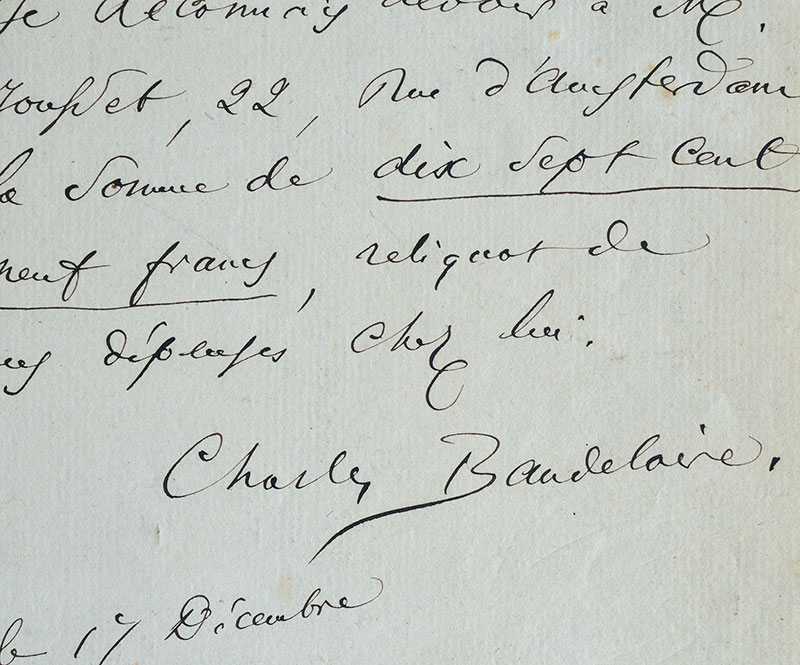 Je reconnais devoir à M.
Jousset, 22, Rue d'Amsterdam
la somme de dix sept cent
neuf francs, reliquat de
mes dépenses chez lui.
Charles Baudelaire.
le 17 Décembre